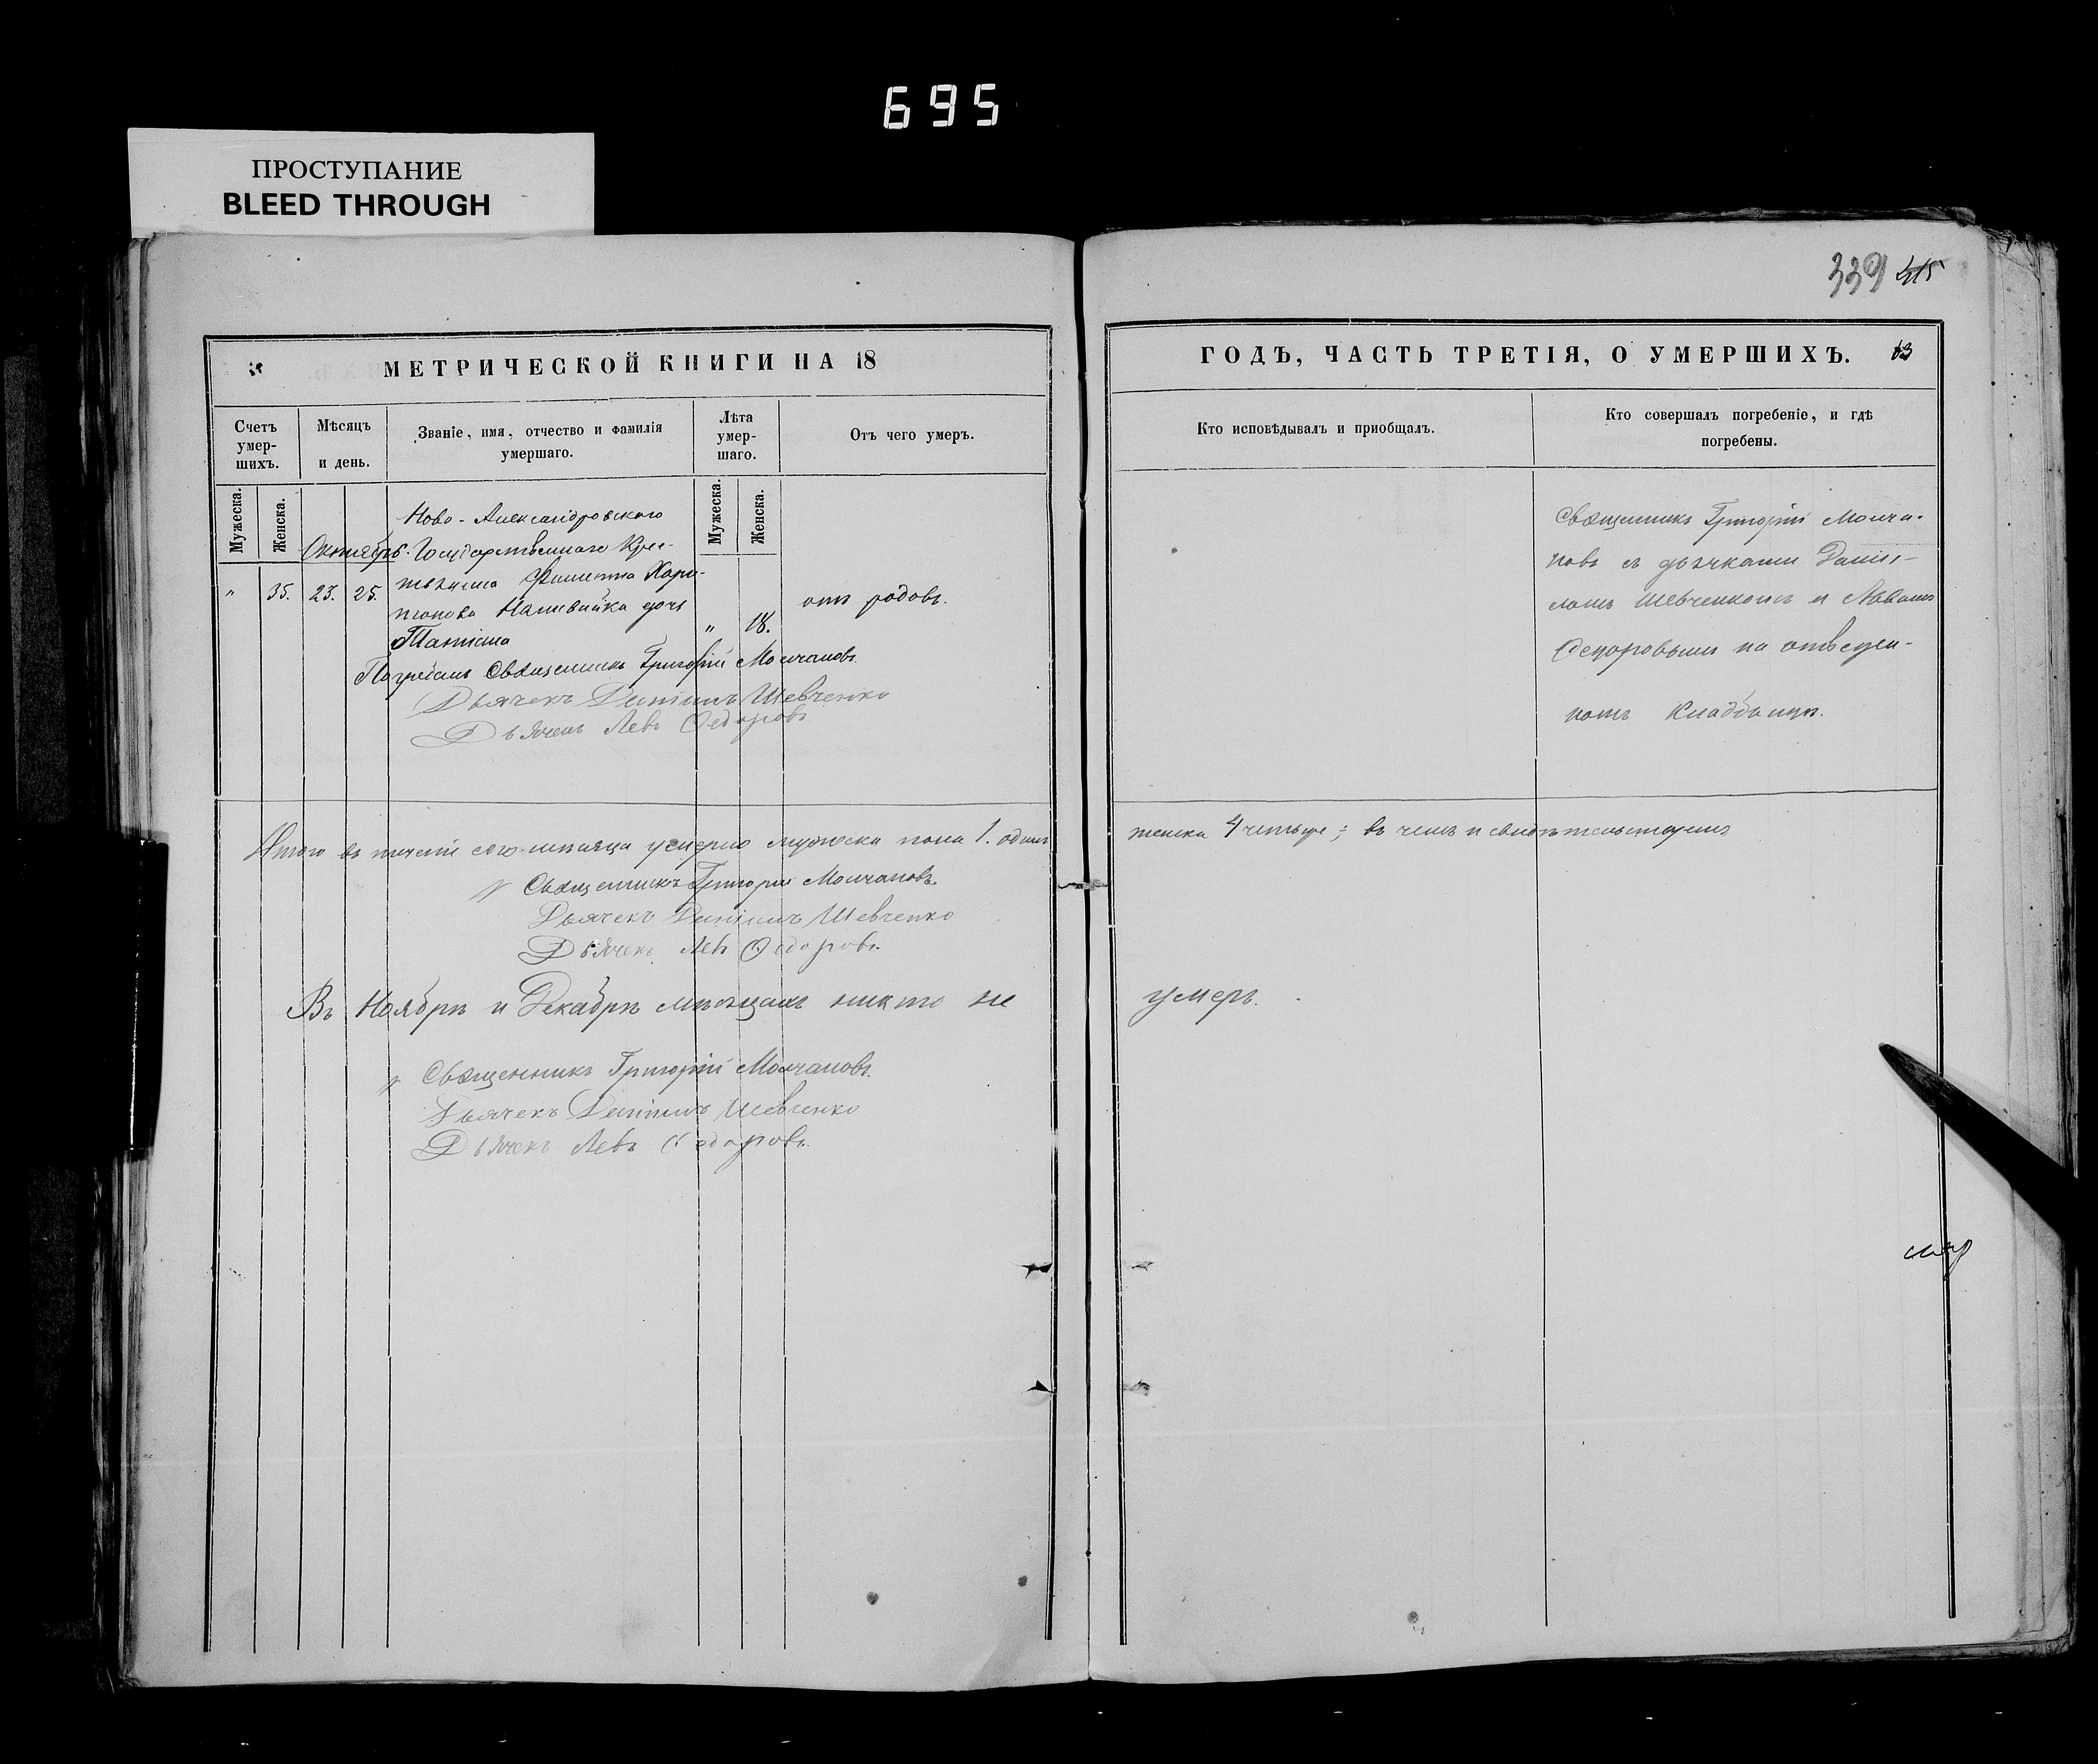 695
ПРОСТУПАНИЕ
BLEED THROUGH
339 415
МЕТРИЧЕСКОЙ КНИГИ НА 18
Счетъ умер-шихъ.
Мѣсяцъ и день.
Званіе, имя, отчество и фамилія умершаго.
Лѣта умер-шаго.
Отъ чего умеръ.
Мужеска.
Женска.
Мужеска.
Женска.
Ново-Александровскаго
Октябрь. Государственнаго Крес-
" 35. 23. 25. тьянина Филиппа Хари-
тонова Наливайка дочь
Татіана " 18. отъ родовъ.
Погребалъ Священникъ Григорій Молчановъ.
Дьячекъ Даніилъ Шевченко
Дьячекъ Левъ Ѳедоровъ
Итого въ теченіе сего мѣсяца умерло мужеска пола 1. одинъ
Священникъ Григорій Молчановъ.
Дьячекъ Даніилъ Шевченко
Дьячекъ Левъ Ѳедоровъ.
Въ Ноябрѣ и Декабрѣ мѣсяцахъ никто не
Священникъ Григорій Молчановъ.
Дьячекъ Даніилъ Шевченко
Дьячекъ Левъ Ѳедоровъ.
ГОДЪ, ЧАСТЬ ТРЕТІЯ, О УМЕРШИХЪ. 63
Кто исповѣдывалъ и пріобщалъ.
Кто совершалъ погребеніе, и гдѣ погребены.
Священникъ Григорій Молча-
новъ съ дьячками Даніи-
ломъ Шевченкомъ и Львомъ
Ѳедоровымъ на отведен-
номъ Кладбищѣ.
женска 4 четыре; въ чемъ и свидѣтельствуемъ
умеръ.